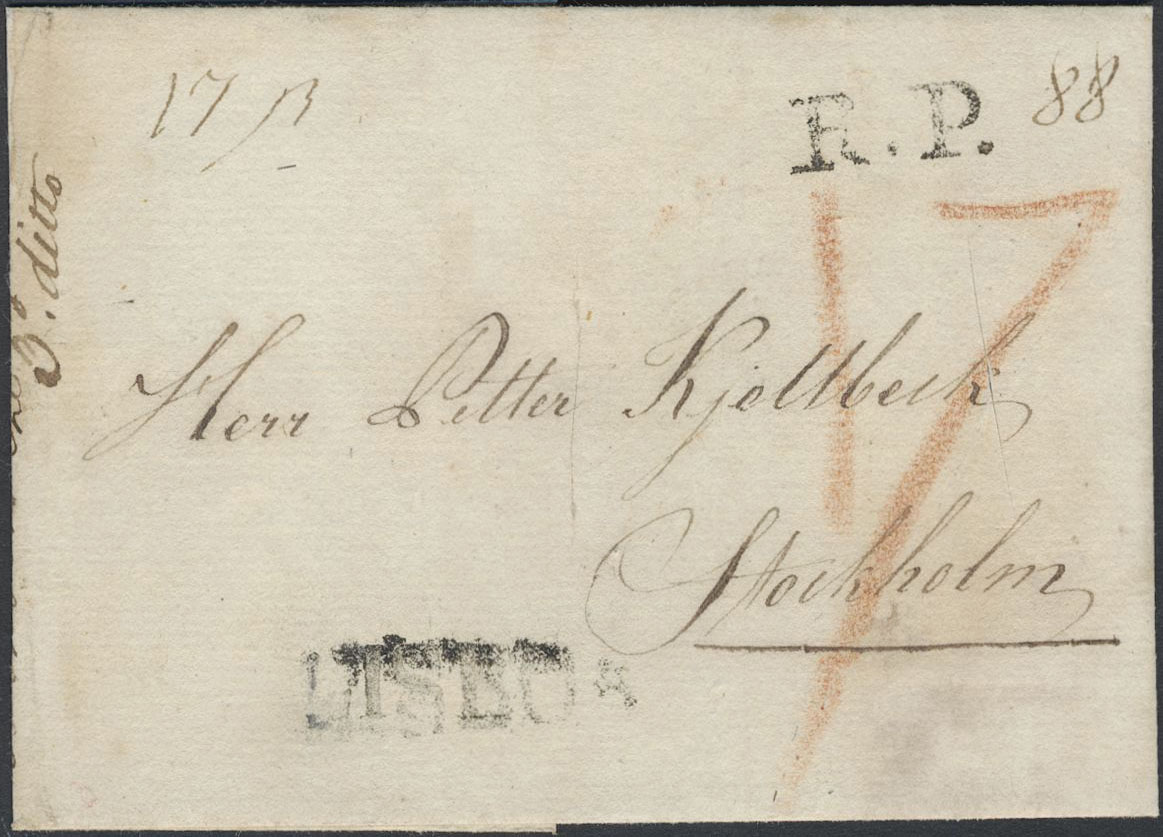 17 ß
R.P. 88
17
Herr Petter Kjellbeck
Stockholm
LISBOA
3. ditto